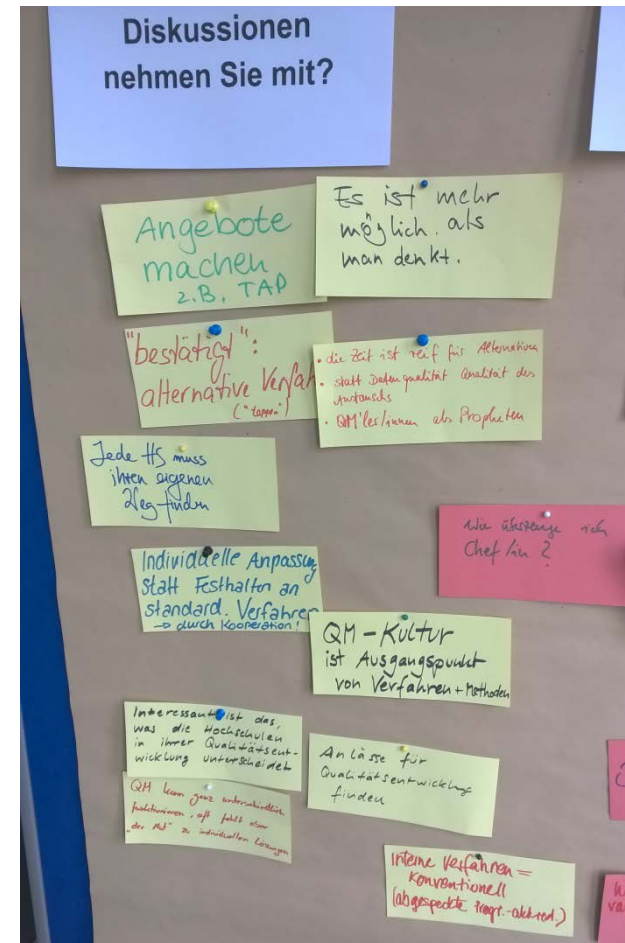 Diskussionen
nehmen Sie mit?
Angebote
machen
z.B. TAP
Es ist mehr
möglich als
man denkt.
"bestätigt":
alternative Verfah
• die Zeit ist reif für Alternativen
• statt Datenqualität Qualität des
Austauschs
• QM'ler/innen als Propheten
Jede HS muss
ihren eigenen
Weg finden
Wie überzeuge ich
Chef/in?
Individuelle Anpassung
statt Festhalten an
standard. Verfahren
→ durch Kooperation!
QM-Kultur
ist Ausgangspunkt
von Verfahren + Methoden
Interessant ist das,
was die Hochschulen
in ihrer Qualitätsent-
wicklung unterscheidet
Anlässe für
Qualitätsentwicklung
finden
QM kann ganz unterschiedlich
funktionieren, oft fehlt aber
"der Mut" zu individuellen Lösungen
Interne Verfahren =
Konventionell
(abgespeckte Progr.-akkred.)